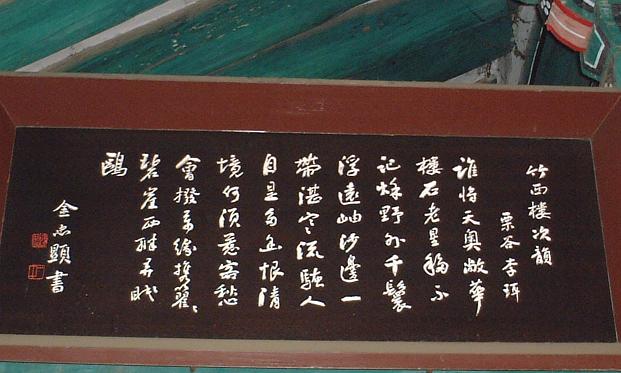 竹西樓次韻
栗谷李珥
誰將天奧敞華
樓石老星移不
記秋野外千鬟
浮遠岫沙邊一
帶湛寒流騷人
自是多幽恨清
境何須惹客愁
會撥萬緣携籊々
碧崖西畔弄眠
鷗
金忠顯書